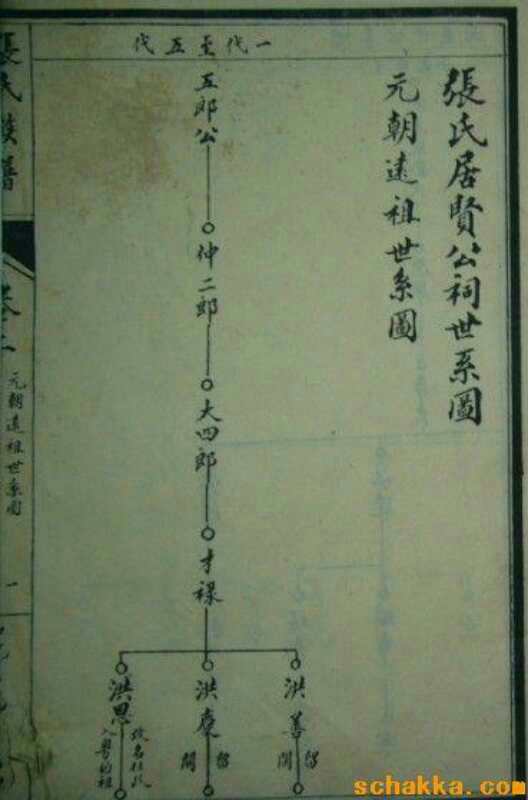 張氏居賢公祠世系圖
元朝遠祖世系圖
一代至五代
五郎公
仲二郎
大四郎
才祿
洪善
留閩
洪慶
留閩
洪恩
改名
入粵始祖
張氏族譜
卷二
元朝遠祖世系圖
一
schakka.com